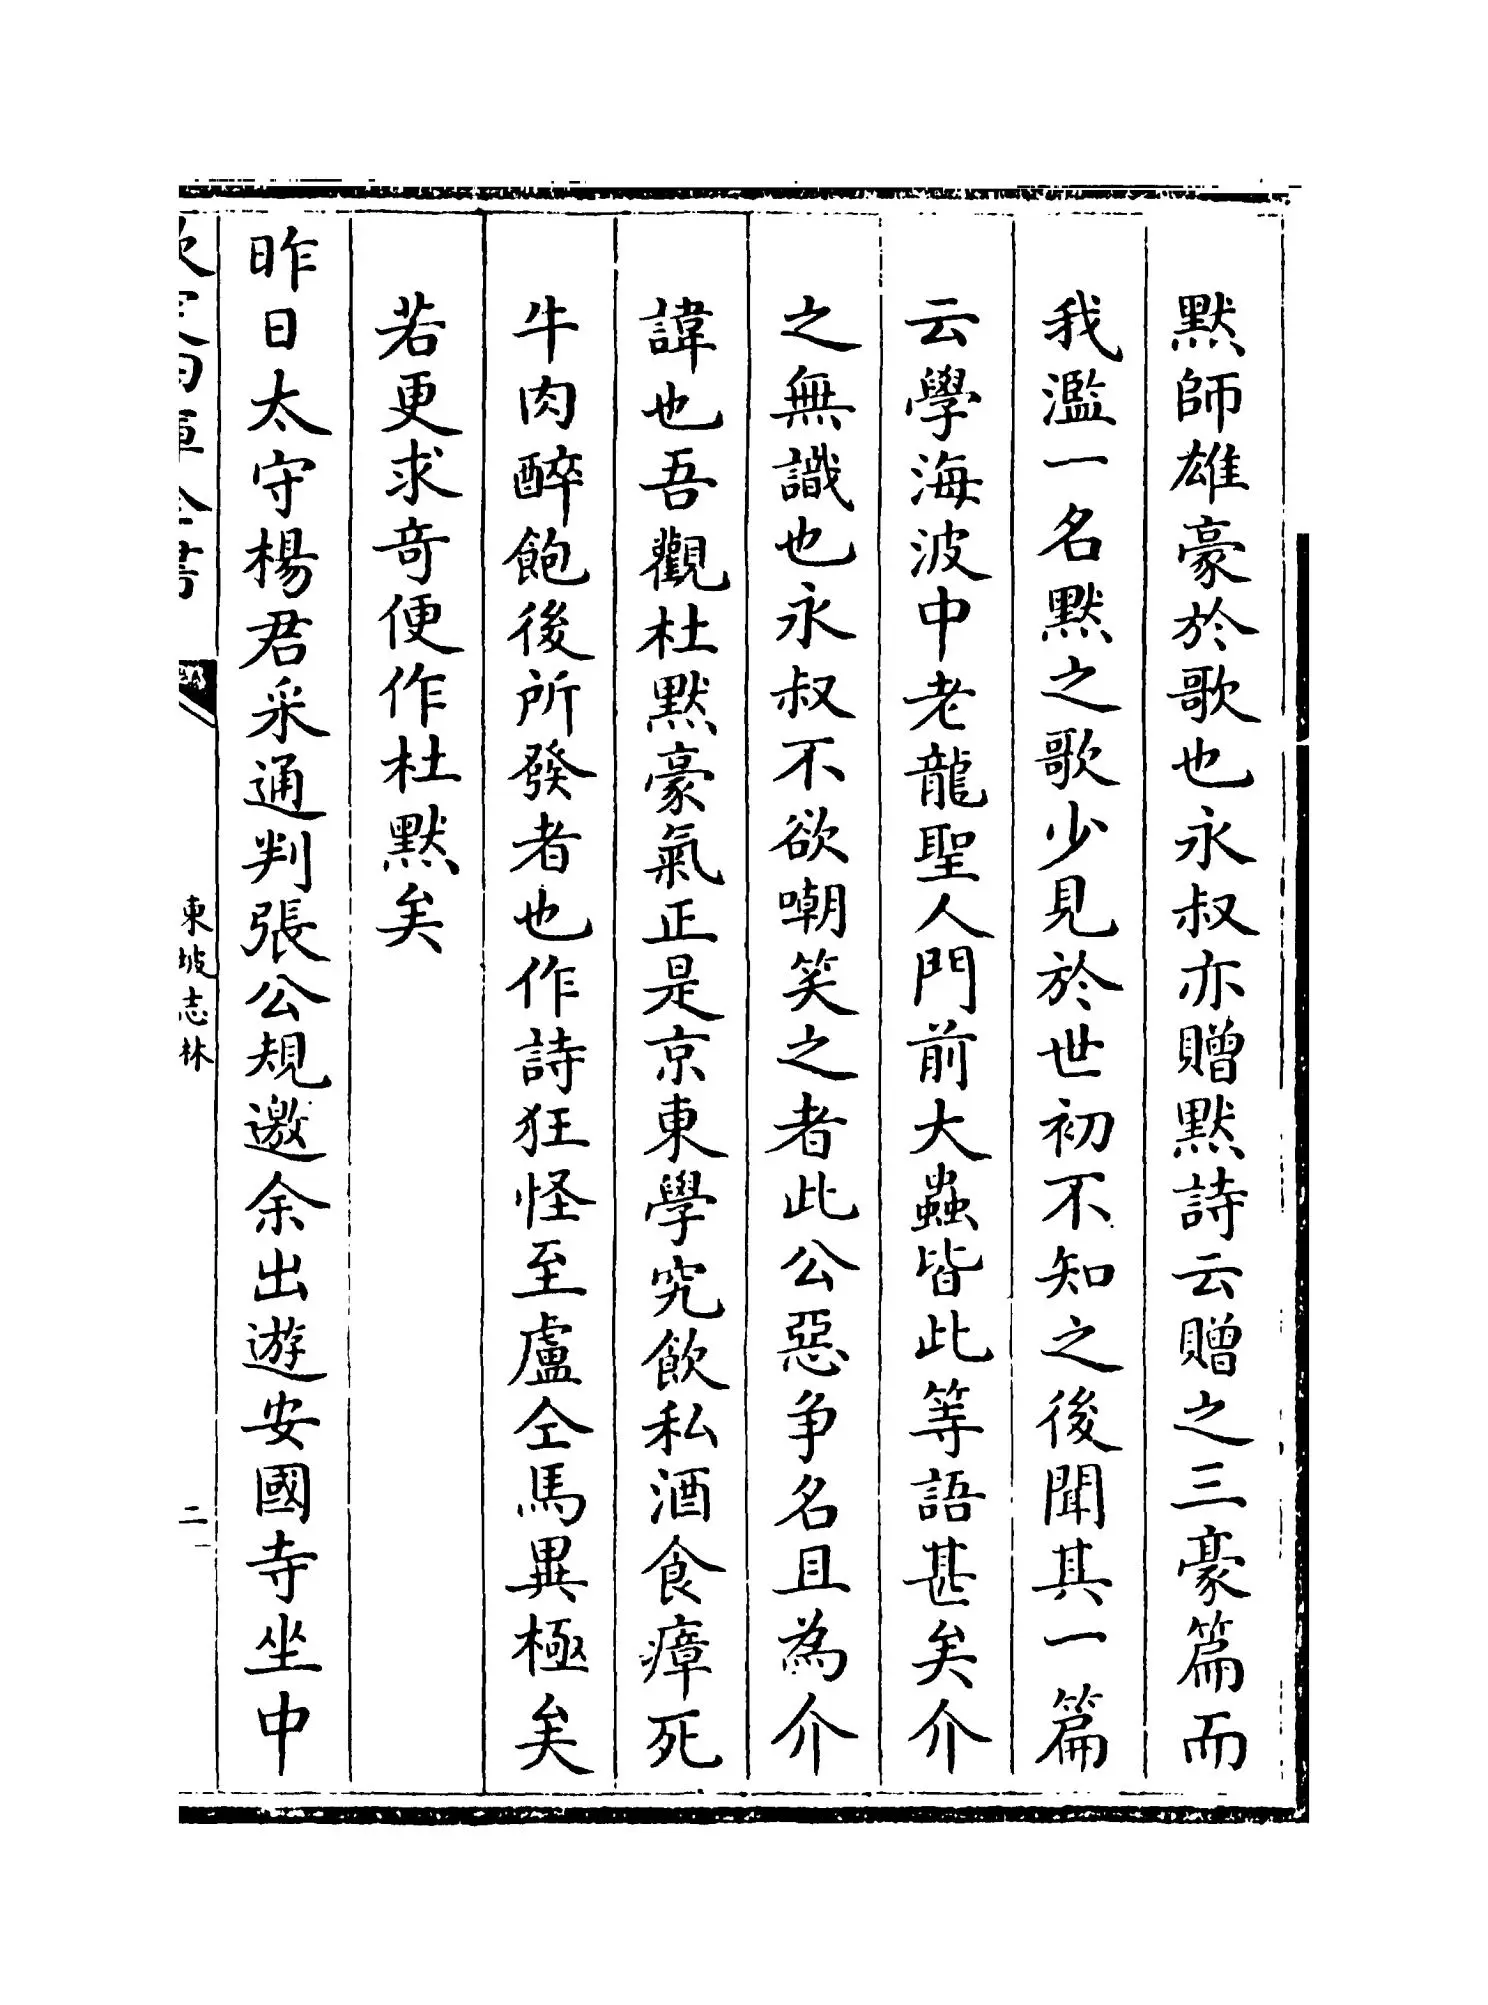 默師雄豪於歌也永叔亦贈默詩云贈之三豪篇而
我濫一名默之歌少見於世初不知之後聞其一篇
云學海波中老龍聖人門前大蟲皆此等語甚矣介
之無識也永叔不欲嘲笑之者此公惡争名且為介
諱也吾觀杜默豪氣正是京東學究飲私酒食瘴死
牛肉醉飽後所發者也作詩狂怪至盧仝馬異極矣
若更求奇便作杜默矣
昨日太守楊君采通判張公規邀余出遊安國寺坐中
東坡志林
二